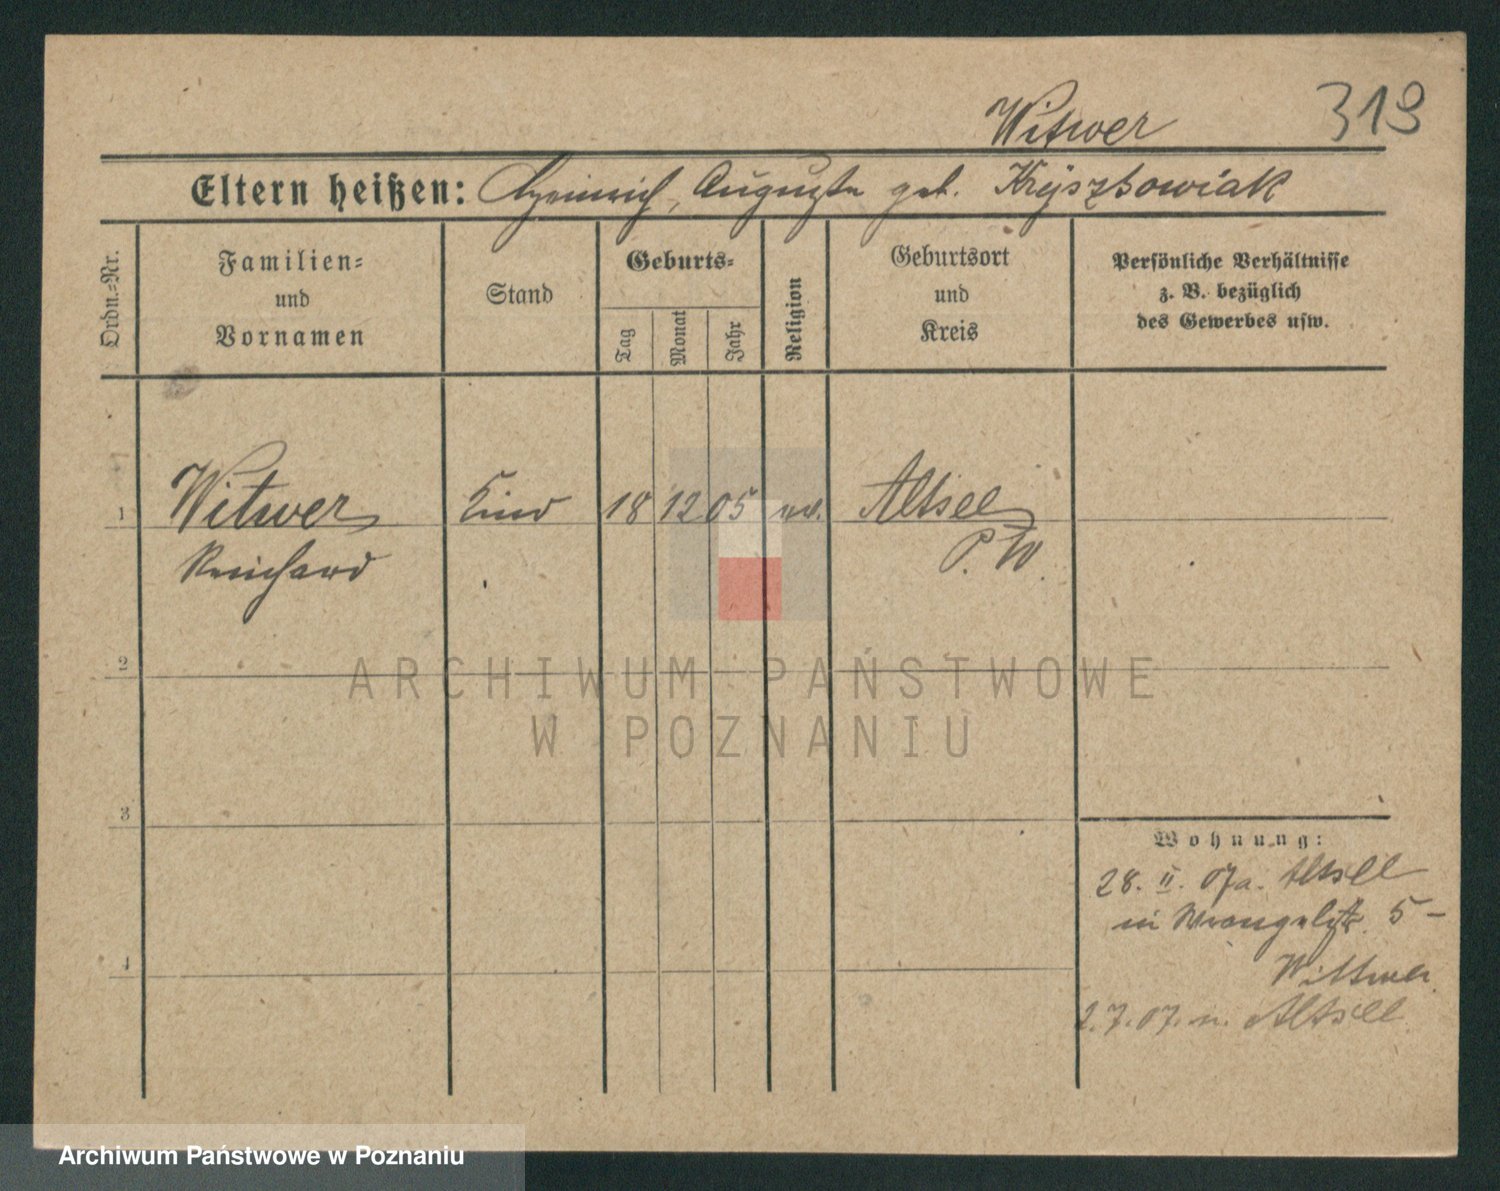 Witwer 319
Eltern heißen: Heinrich, Auguste geb. Krysztowiak
Ordn.-Nr.
Familien-
und
Vornamen
Stand
Geburts-
Tag
Monat
Jahr
Religion
Geburtsort
und
Kreis
Persönliche Verhältnisse
z. B. bezüglich
des Gewerbes usw.
1 Witwer Kind 18 12 05 ev. Altsee
Reinhard P. W.
2
3
4
Wohnung:
28. II. 07 a. Altsee
in Wrangelstr. 5 -
Wittwer
2.7.07. n. Altsee
ARCHIWUM PAŃSTWOWE
W POZNANIU
Archiwum Państwowe w Poznaniu